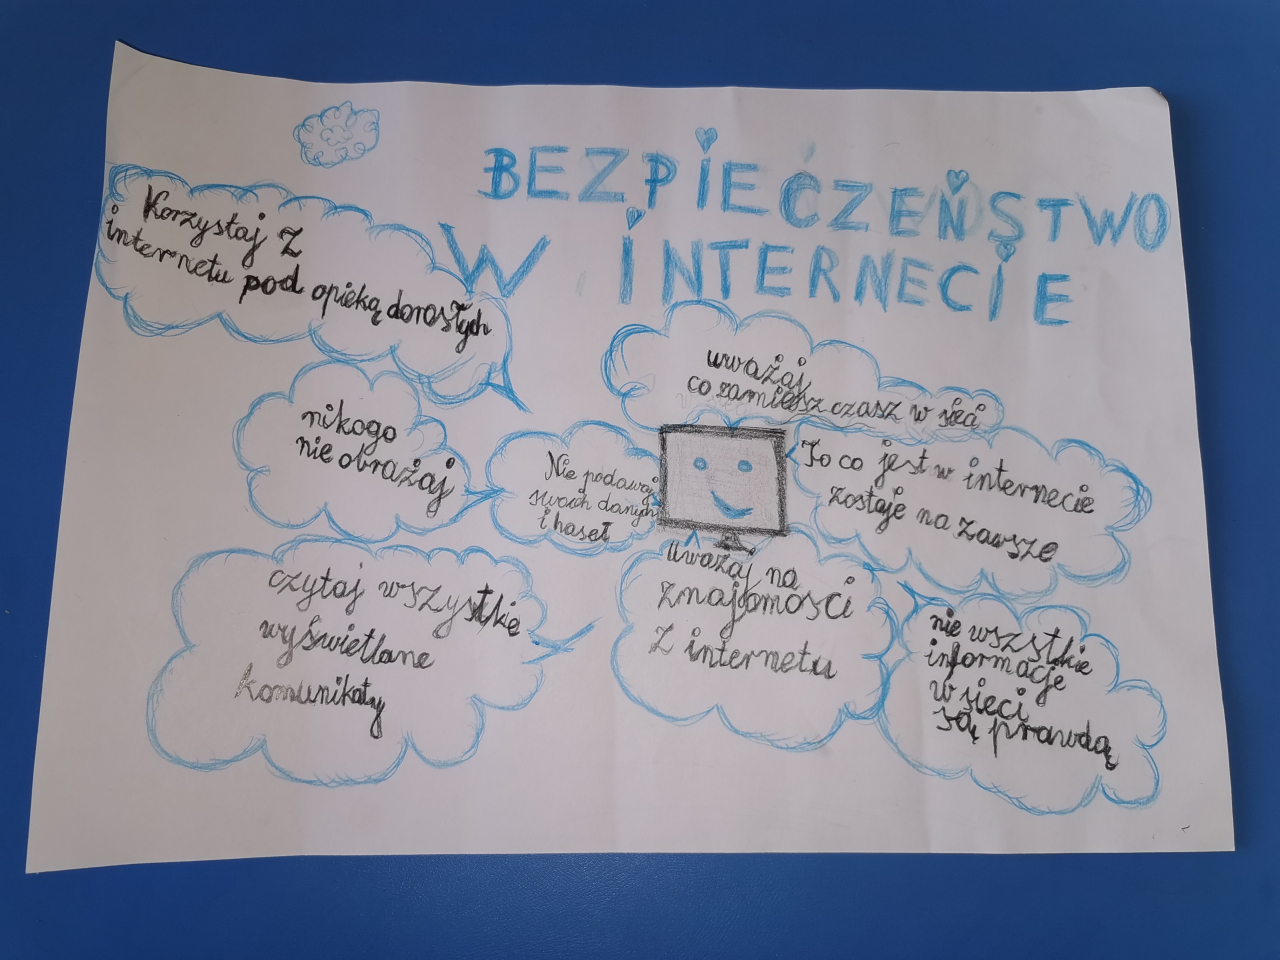 BEZPIECZEŃSTWO
W INTERNECIE
Korzystaj z
internetu pod opieką dorosłych
nikogo
nie obrażaj
Nie podawaj
swoich danych
i haseł
uważaj
co zamieszczasz w sieci
To co jest w internecie
zostaje na zawsze
czytaj wszystkie
wyświetlane
komunikaty
Uważaj na
znajomości
z internetu
nie wszstkie
informacje
w sieci
są prawdą